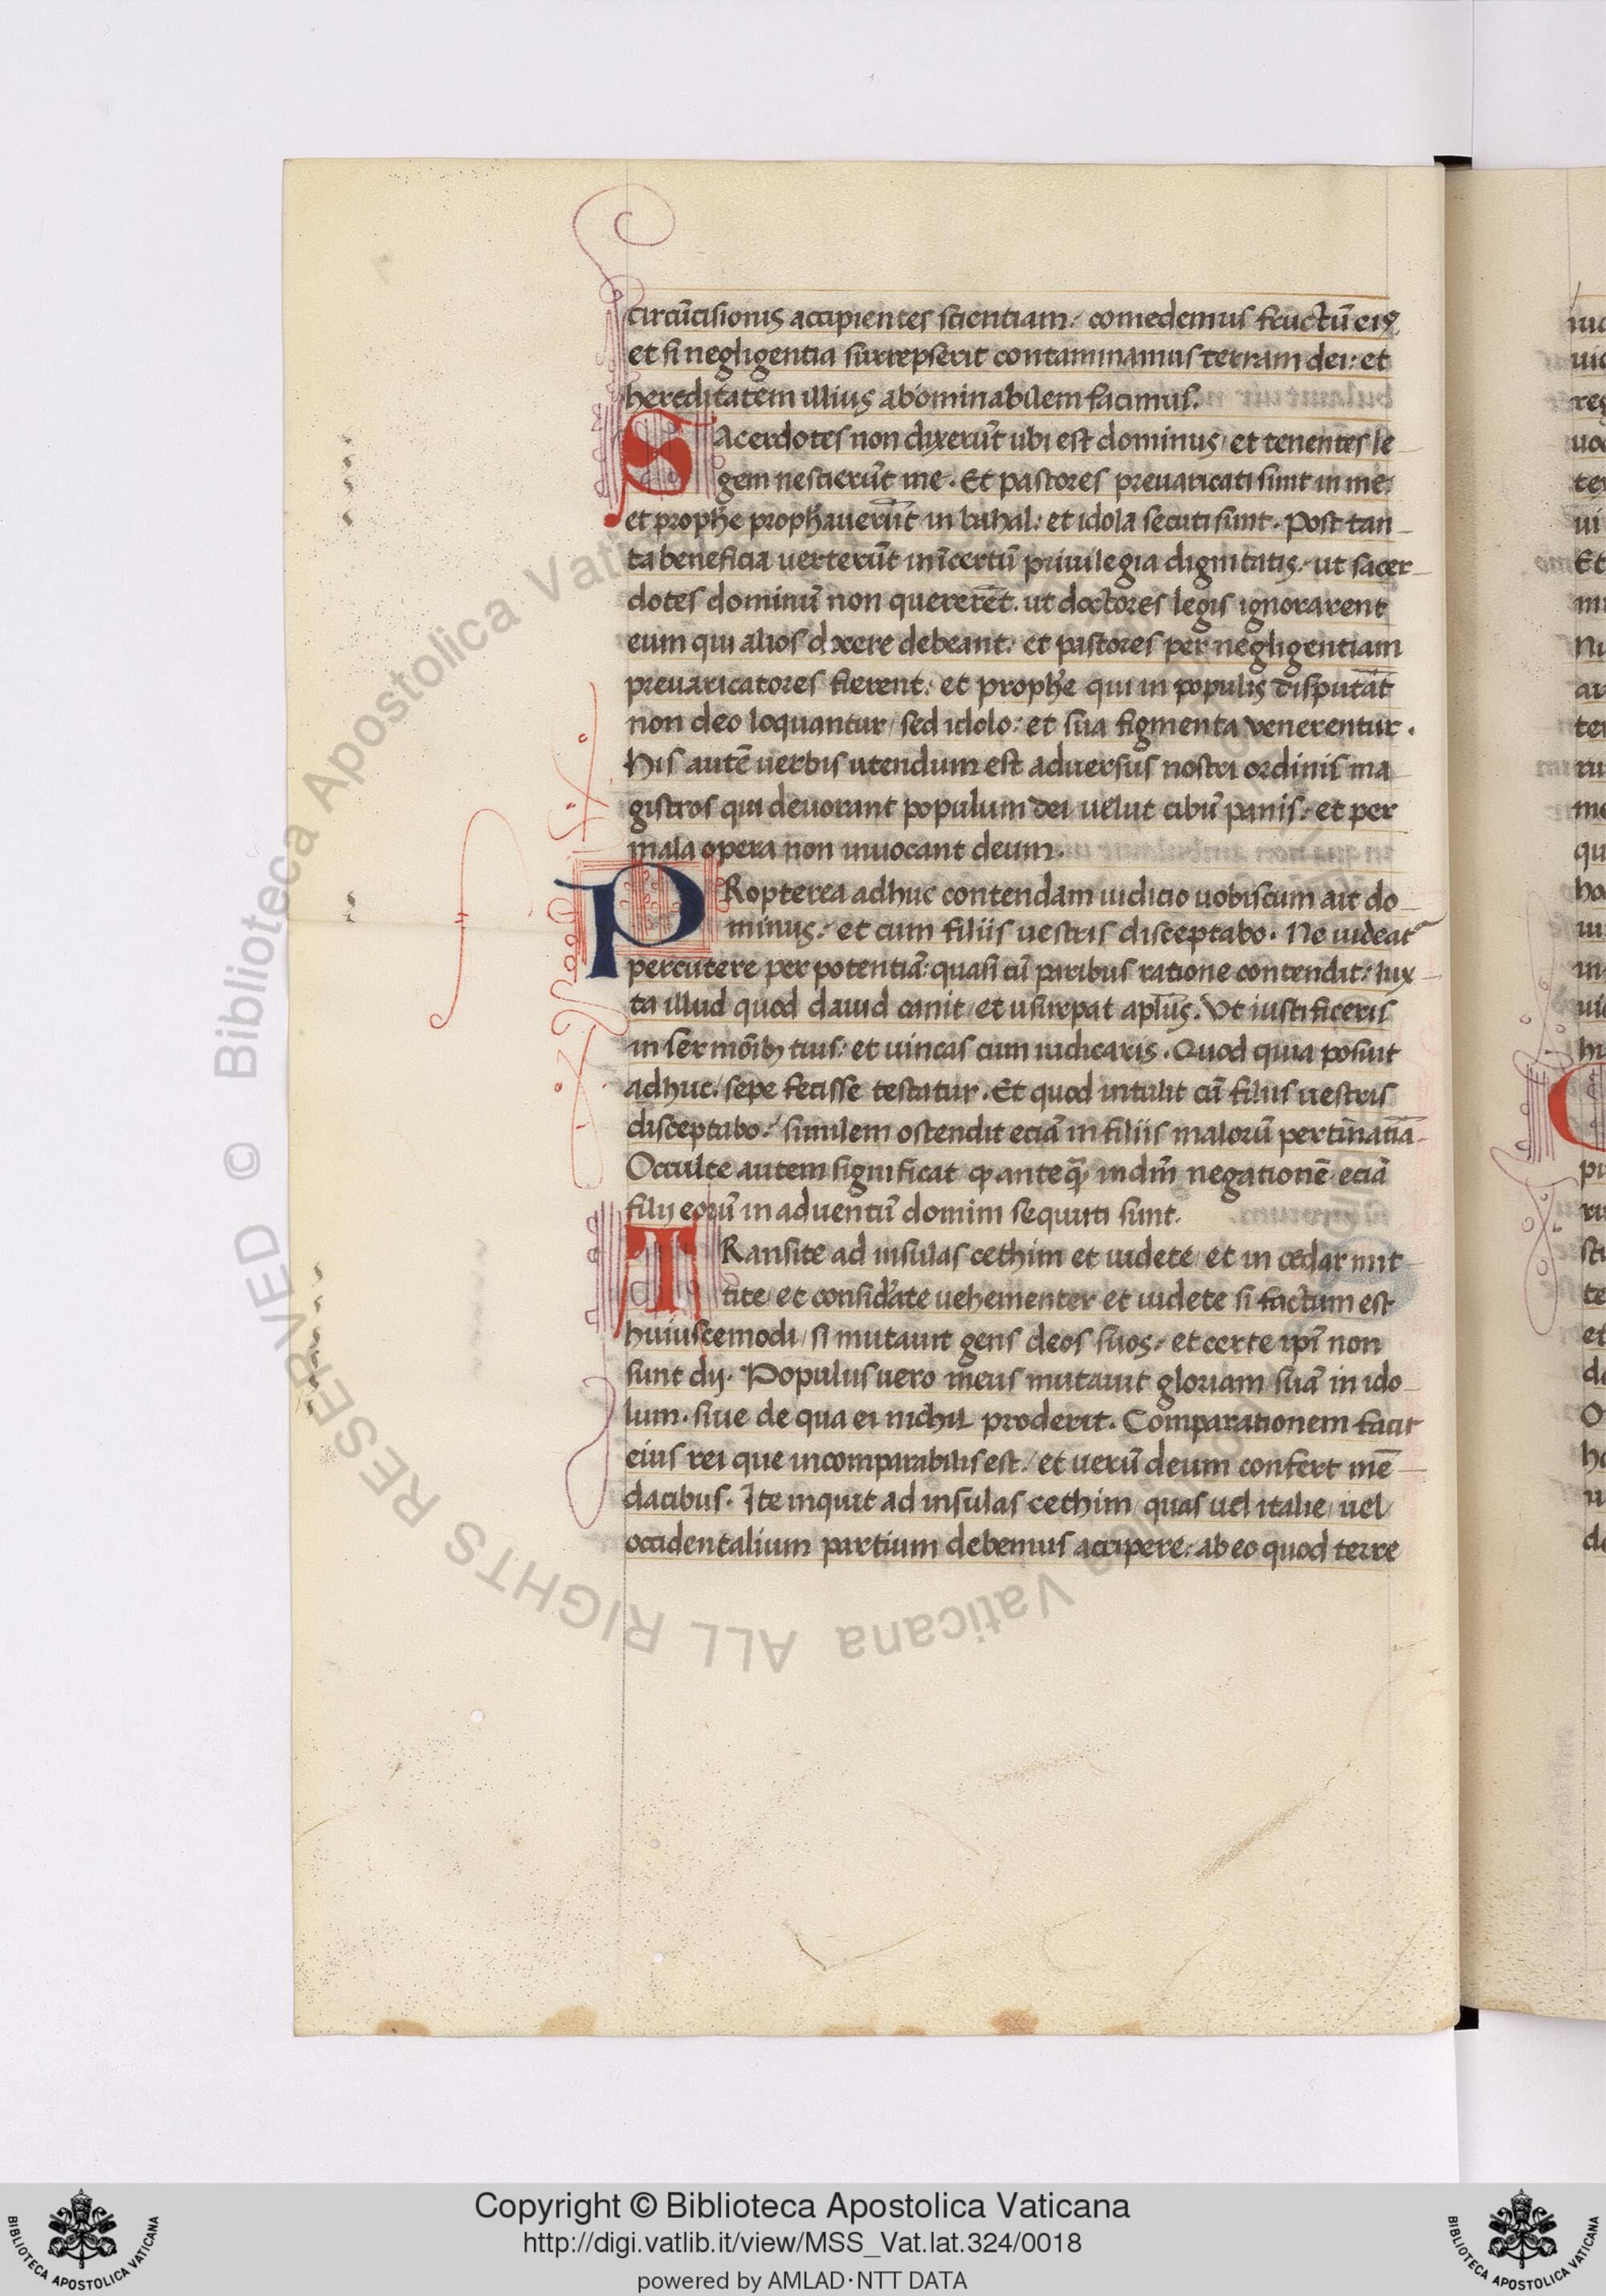 circūcisionis accipientes scientiam: comedemus fructū eiꝰ
et si negligentia surrepserit contaminamus terram dei: et
hereditatem illius abominabilem facimus.
SAcerdotes non dixerūt ubi est dominus, et tenentes le
gem nescierūt me. Et pastores prevaricati sunt in me:
et prophe prophaverūt in bahal: et idola secuti sunt. Post tan
ta beneficia verterūt in īcertū privilegia dignitatis: ut sacer
dotes dominū non quererēt. ut doctores legis ignorarent
eum qui alios docere debeant: et pastores per negligentiam
prevaricatores fierent: et prophe qui in populis disputāt
non deo loquantur, sed idolo: et sua figmenta venerentur.
His autē verbis utendum est adversus nostri ordinis ma
gistros qui devorant populum dei velut cibū panis: et per
mala opera non invocant deum.
PRopterea adhuc contendam iudicio vobiscum ait do
minus: et cum filiis vestris disceptabo. Ne videat
percutere per potentiā: quasi cū paribus ratione contendit: Iux
ta illud quod david canit, et usurpat apl̄us. Vt iustificeris
in sermōibꝫ tuis: et vincas cum iudicaris. Quod quia posuit
adhuc. sepe fecisse testatur. Et quod intulit cū filiis vestris
disceptabo: similem ostendit eciā in filiis malorū pertinatiā.
Occulte autem significat ꝙ anteq̄ in dn̄i negationē eciā
filii eorū in adventū domini sequuti sunt.
TRansite ad insulas cethim et videte, et in cedar mit
tite, et considerate vehementer et videte si factum est
huiuscemodi, si mutavit gens deos suos: et certe ip̄i non
sunt dij. Populus vero meus mutavit gloriam suā in ido
lum. sive de qua ei nichil proderit. Comparationem facit
eius rei que incomparabilis est: et verū deum confert mē
dacibus. Ite inquit ad insulas cethim, quas vel italie, vel
occidentalium partium debemus accipere: ab eo quod terre
Copyright © Biblioteca Apostolica Vaticana
http://digi.vatlib.it/view/MSS_Vat.lat.324/0018
powered by AMLAD·NTT DATA